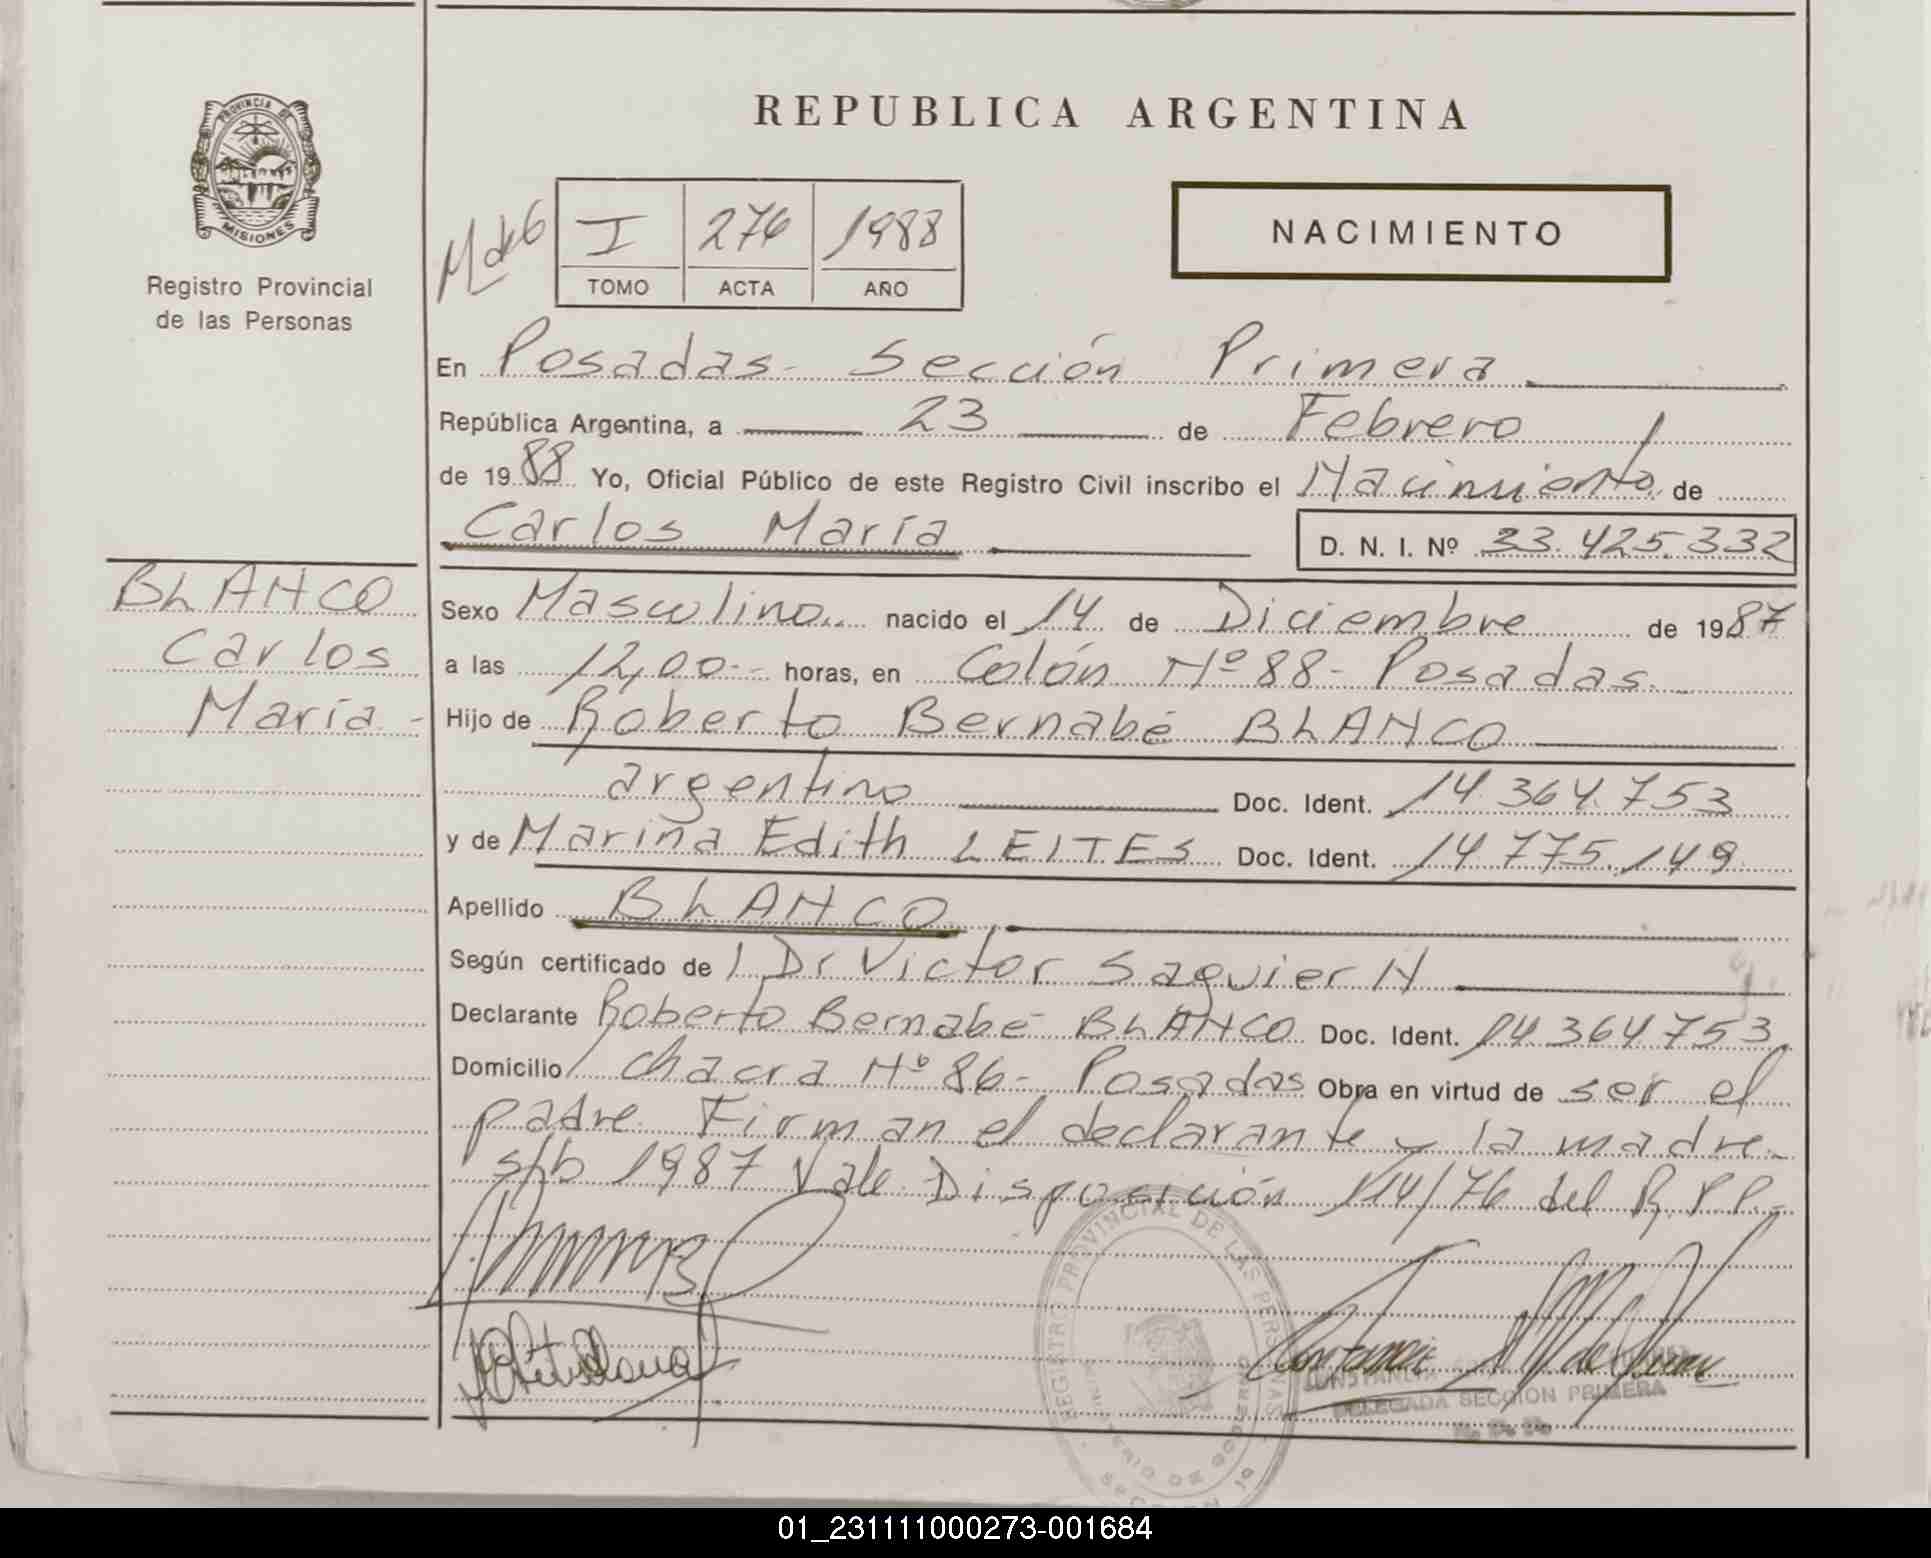 REPUBLICA ARGENTINA
PROVINCIA DE
MISIONES
Registro Provincial
de las Personas
I 276 1988
TOMO ACTA AÑO
NACIMIENTO
En Posadas- Sección Primera
República Argentina, a 23 de Febrero
de 1988 Yo, Oficial Público de este Registro Civil inscribo el Nacimiento de
Carlos María D. N. I. Nº 33.425.332
BLANCO
Carlos
María -
Sexo Masculino nacido el 14 de Diciembre de 1987
a las 12,00 -- horas, en Colón Nº 88 - Posadas
Hijo de Roberto Bernabé BLANCO
argentino Doc. Ident. 14.364.753
y de Marina Edith LEITES Doc. Ident. 14.775.149
Apellido BLANCO
Según certificado de / Dr Victor Saguier N
Declarante Roberto Bernabé BLANCO Doc. Ident. 14.364.753
Domicilio Chacra Nº 86 - Posadas Obra en virtud de ser el
padre. Firman el declarante y la madre.
s/b 1987 Vale Disposición 114/76 del R.P.P.-
REGISTRO PROVINCIAL DE LAS PERSONAS
MINISTERIO DE GOBIERNO
DELEGADA SECCION PRIMERA
01_231111000273-001684